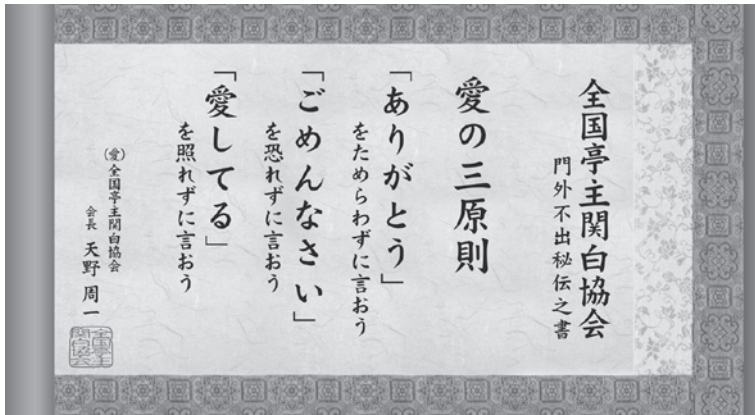 全国亭主関白協会
門外不出秘伝之書
愛の三原則
「ありがとう」
をためらわずに言おう
「ごめんなさい」
を恐れずに言おう
「愛してる」
を照れずに言おう
(愛)全国亭主関白協会
会長 天野 周一
全国亭主
関白協会